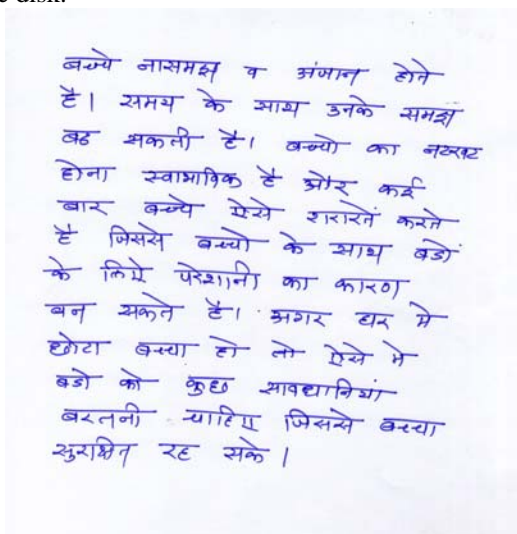 e disk.
बच्चे नासमझ व अंजान होते
है। समय के साथ उनके समझ
बढ सकती है। बच्चो का नटखट
होना स्वाभाविक है और कई
बार बच्चे ऐसे शरारतें करते
है जिससे बच्चो के साथ बडों
के लिये परेशानी का कारण
बन सकते है। अगर घर मे
छोटा बच्चा हो तो ऐसे मे
बडो को कुछ सावधानियां
बरतनी चाहिए जिससे बच्चा
सुरक्षित रह सके।